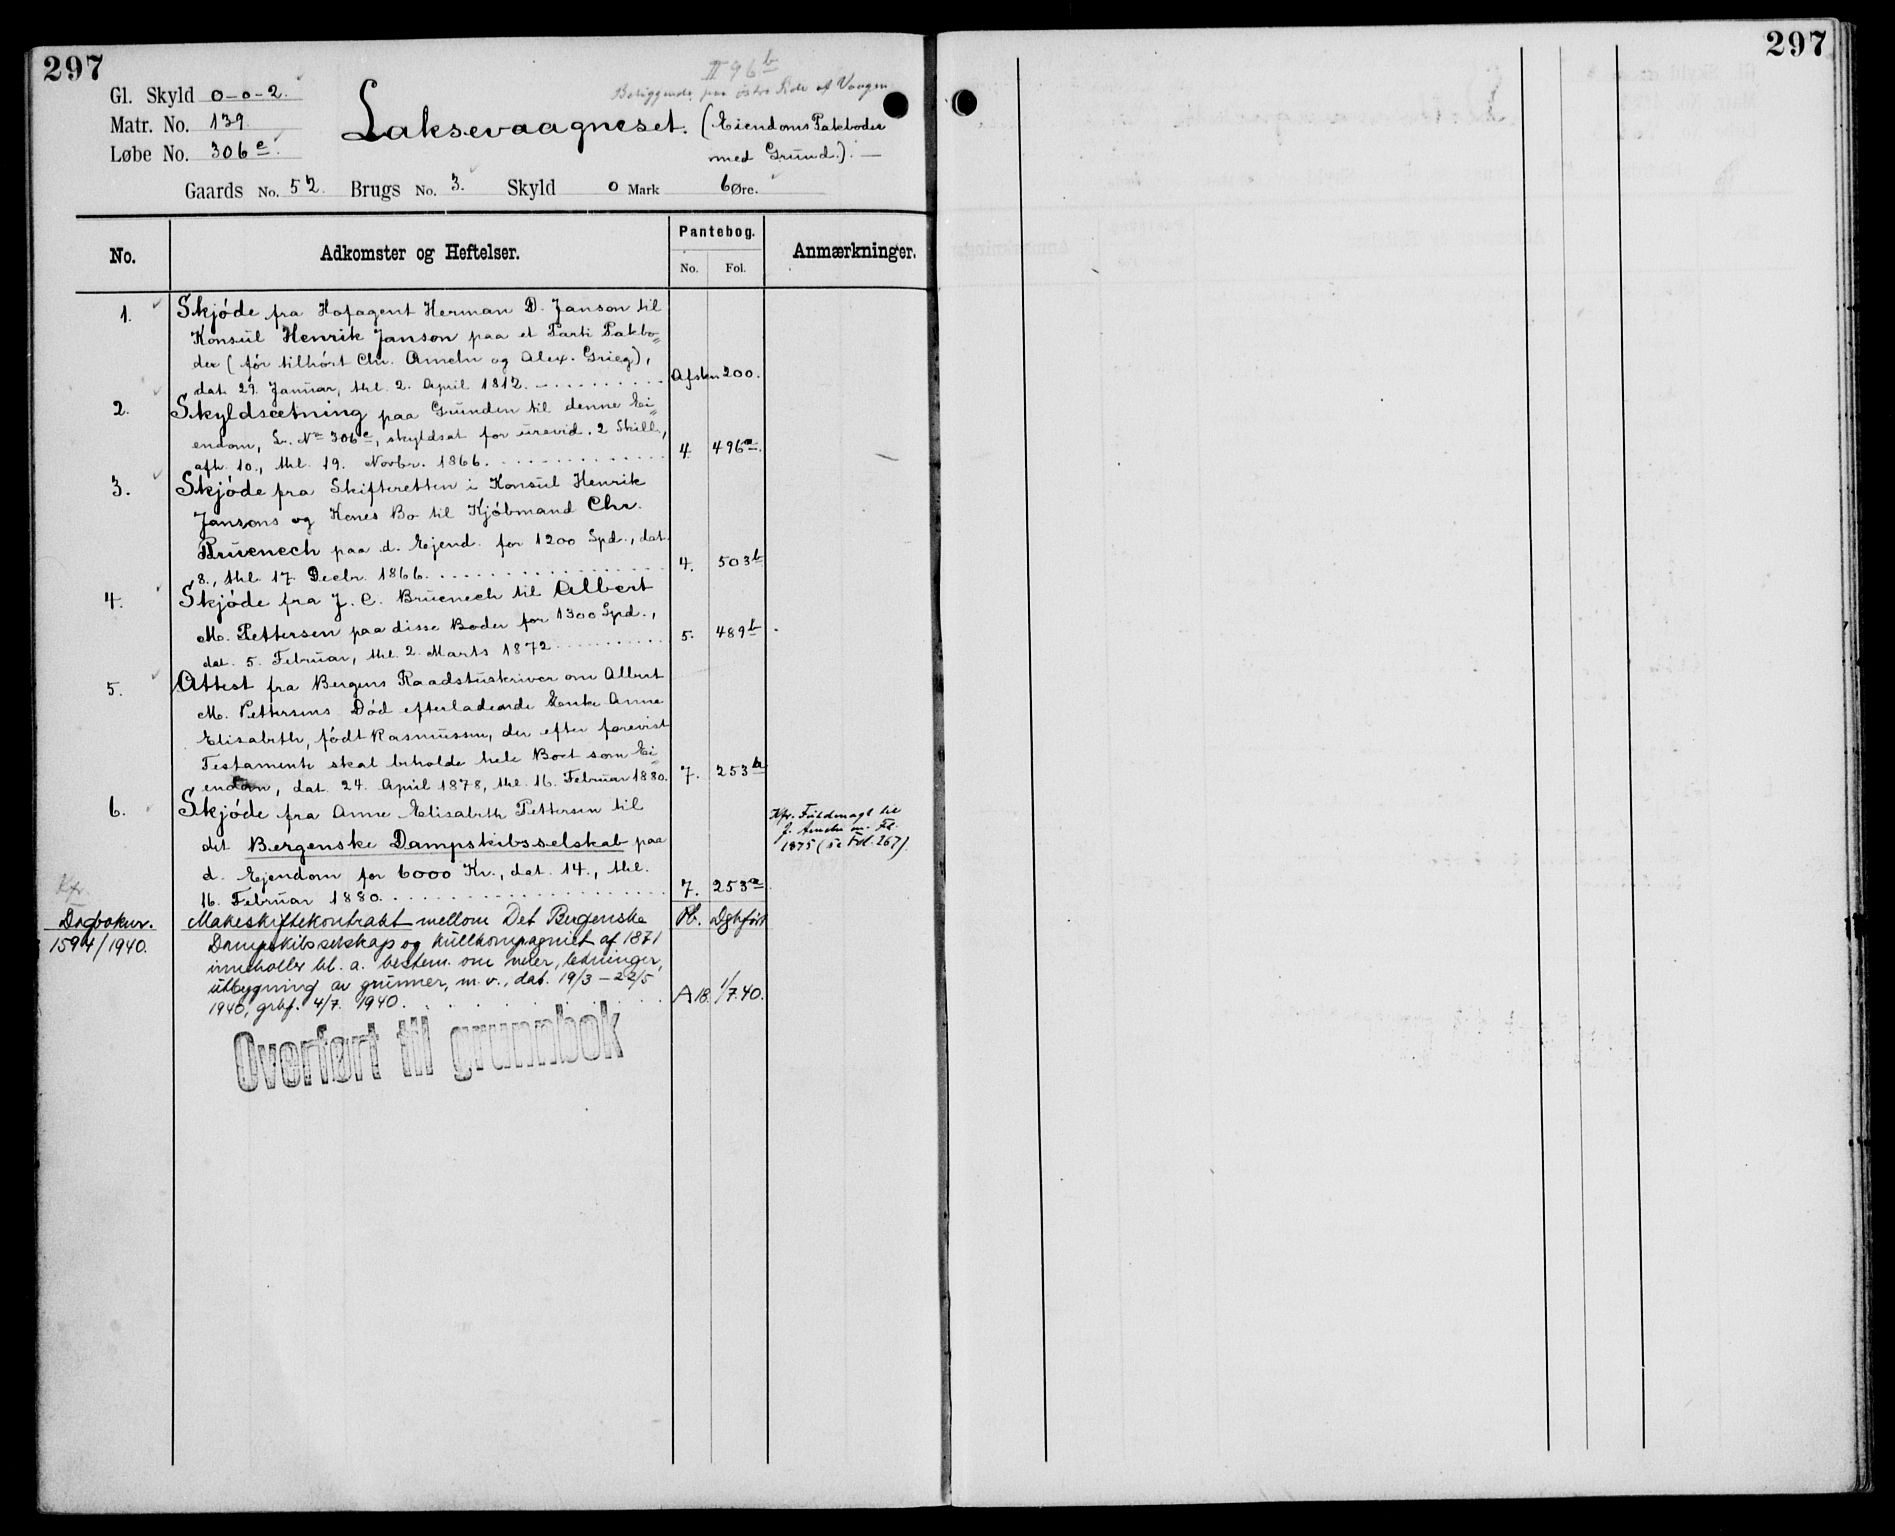 297
297
II 96 b
Beliggende paa østre Side af Vaagen
Gl. Skyld 0-0-2.
Matr. No. 139.
Løbe No. 306 e.
Laksevaagneset. (Eiendoms Pakboder
med Grund.). —
Gaards No. 52. Brugs No. 3. Skyld 0 Mark 6 Øre.
No.
Adkomster og Heftelser.
Pantebog.
No. Fol.
Anmærkninger.
1. Skjøde fra Hofagent Herman D. Janson til
Konsul Henrik Janson paa et Parti Pakbo=
der (før tilhørt Chr. Ameln og Alex. Grieg),
dat. 29. Januar, thl. 2. April 1812. 200.
2. Skyldsætning paa Grunden til denne Ei=
endom, L. No 306 e, skyldsat for urevid. 2 Skill.,
afh. 10., thl. 19. Novbr. 1866. 4. 496 a.
3. Skjøde fra Skifteretten i Konsul Henrik
Jansons og Kones Bo til Kjøbmand Chr.
Bruenech paa d. Ejend. for 1200 Spd., dat.
8., thl. 17. Decbr. 1866. 4. 503 b
4. Skjøde fra J. C. Bruenech til Albert
M. Pettersen paa disse Boder for 1300 Spd.,
dat. 5. Februar, thl. 2. Marts 1872 5. 489 b
5. Attest fra Bergens Raadstuskriver om Albert
M. Pettersens Død efterladende Enke Anne
Elisabeth, født Rasmussen, der efter forevist
Testamente skal beholde hele Boet som Ei=
endom, dat. 24. April 1878, thl. 16. Februar 1880. 7. 253
6. Skjøde fra Anne Elisabeth Pettersen til
det Bergenske Dampskibsselskab paa
d. Ejendom for 6000 Kr., dat. 14., thl.
16. Februar 1880. 7. 253 a
Kfr. Fuldmagt til
J. Ameln
1875 (5 Fol. 267).
Kfr.
Dagboknr.
1594/1940.
Makeskiftekontrakt mellom Det Bergenske Pb. Dgbført
Dampskibsselskap og Kullkompagniet af 1871
inneholler bl. a. bestem. om veier, ledninger,
utbygning av grunner, m. v., dat. 19/3 – 22/5
1940, grbf. 4/7. 1940. A 18. 1/7.40.
Overført til grunnbok